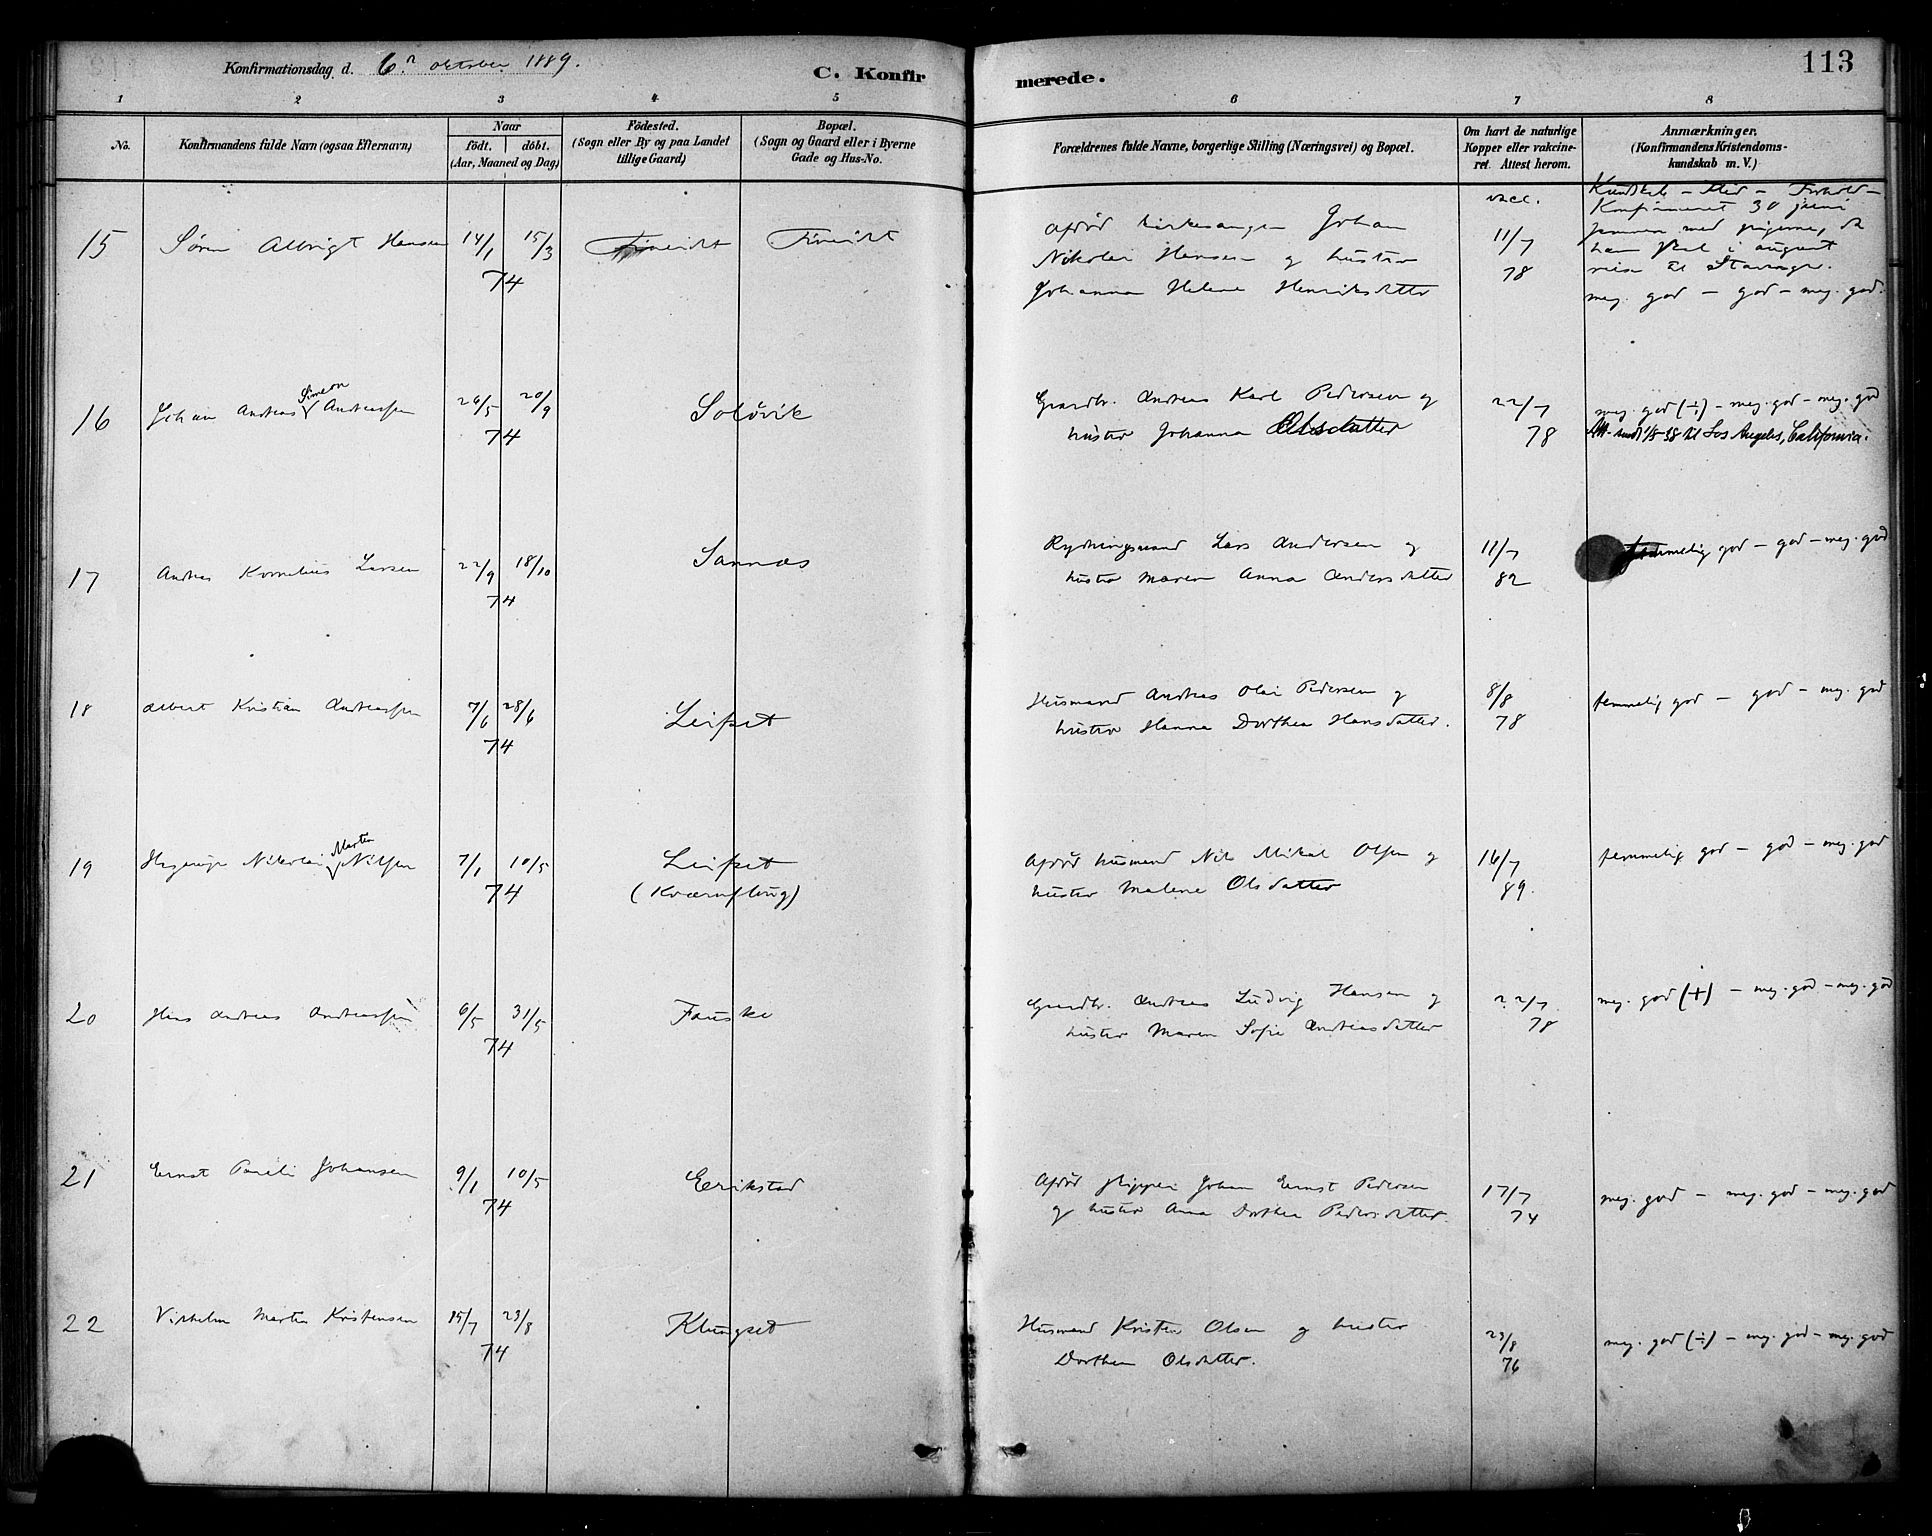 Konfirmationsdag d. 6. oktober 1889.
C. Konfirmerede.
113
1 2 3 4 5 6 7 8
No.
Konfirmandens fulde Navn (ogsaa Efternavn)
Naar
födt. döbt.
(Aar, Maaned og Dag)
Födested.
(Sogn eller By og paa Landet
tillige Gaard)
Bopæl.
(Sogn og Gaard eller i Byerne
Gade og Hus-No.
Forældrenes fulde Navne, borgerlige Stilling (Næringsvei) og Bopæl.
Om havt de naturlige
Kopper eller vakcine-
ret. Attest herom.
Anmærkninger.
(Konfirmandens Kristendoms-
kundskab m. V.)
15 Søren Albrigt Hansen 14/1 15/3 74
Afdød kirkesanger Johan
Nikolai Hansen og hustru
Johanna Helene Henriksdatter
vacc. 11/7 78
Kundskab – Flid – Forhold –
Konfirmeret 30 juni
sammen med pigerne, da
han skal i august
reise til Stavanger.
meg. god – god – meg. god.
16 Johan Andreas Simeon Andreassen 26/5 20/9 74
Soløvik
Gaardbr. Andreas Karl Pedersen og
hustru Johanna Olsdatter
22/7 78
meg. god (÷) – meg. god – meg. god
Att. sendt 1/5-38 til Los Angeles, California.
17 Andreas Kornelius Larsen 22/9 18/10 74
Sannæs
Rydningsmand Lars Andersen og
hustru Maren Anna Andersdatter
11/7 82
temmelig god – god – meg. god
18 Albert Kristian Andreassen 7/6 28/6 74
Leifset
Husmand Andreas Olai Pedersen og
hustru Hanna Dorthea Hansdatter.
8/8 78
temmelig god – god – meg. god
19 Nikolai Martin Nilsen 7/1 10/5 74
Leifset
(Kværnflaug)
Afdød husmand Nils Mikal Olsen og
hustru Malene Olsdatter
16/7 89.
temmelig god – god – meg. god
20 Hans Andreas Andreassen 6/5 31/5 74
Fauske
Gaardbr. Andreas Ludvig Hansen og
hustru Maren Sofie Andreasdatter
22/7 78
meg. god (+) – meg. god – meg. god
21 Ernst Pareli Johansen 9/1 10/5 74
Erikstad
Afdød skipper Johan Ernst Pedersen
og hustru Anna Dorthea Pedersdatter.
17/7 74
meg. god – meg. god – meg. god
22 Vilhelm Martin Kristensen 15/7 23/8 74
Klungset
Husmand Kristen Olsen og hustru
Dorthea Olsdatter.
23/8 76
meg. god (÷) – meg. god – meg. god